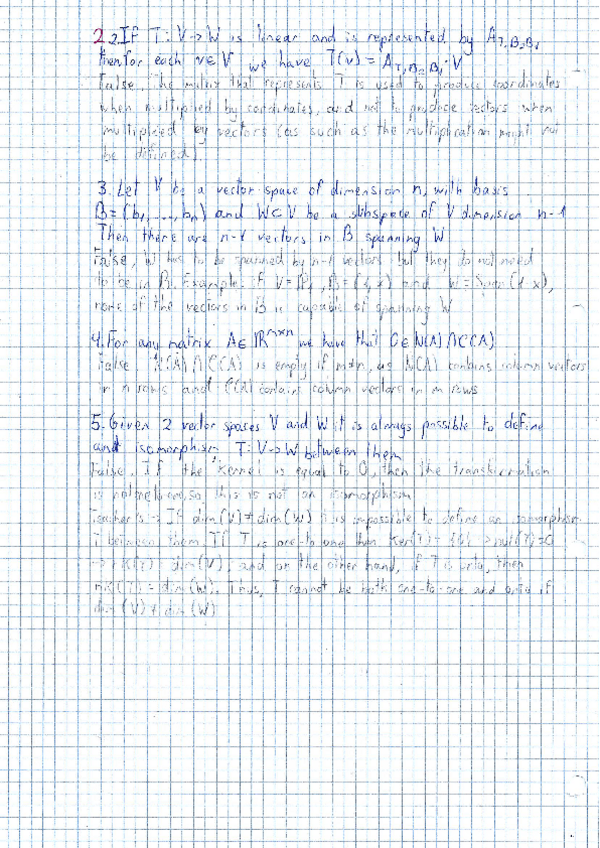 2 2. If T: V→W is linear and is represented by A_T,B₂B₁
then for each v∈V we have T(v) = A_T,B₂B₁·V
False. The matrix that represents T is used to produce coordinates
when multiplied by coordinates, and not to produce vectors when
multiplied by vectors (as such as the multiplication might not
be defined).
3. Let V be a vector space of dimension n, with basis
B = (b₁, ..., bₙ) and W⊂V be a subspace of V dimension n-1
Then there are n-1 vectors in B spanning W
False, W has to be spanned by n-1 vectors but they do not need
to be in B. Example: if V = P₁, B = (1, x) and W = Span(1-x),
none of the vectors in B is capable of spanning W
4. For any matrix A∈ℝᵐˣⁿ we have that 0∈N(A)∩C(A)
False. N(A)∩C(A) is empty if m≠n, as N(A) contains column vectors
in n rows and C(A) contains column vectors in m rows
5. Given 2 vector spases V and W it is always possible to define
and isomorphism T: V→W between them
False. If the kernel is equal to 0, then the transformation
is not so this is not an isomorphism
Teacher's → If dim(V)≠dim(W) it is impossible to define an isomorphism
T between them. If T is one-to-one then Ker(T)={0} → null(T)=0
→ rk(T) = dim(V) and on the other hand, if T is onto, then
rk(T) = dim(W). Thus, T cannot be both one-to-one and onto if
dim(V)≠dim(W)